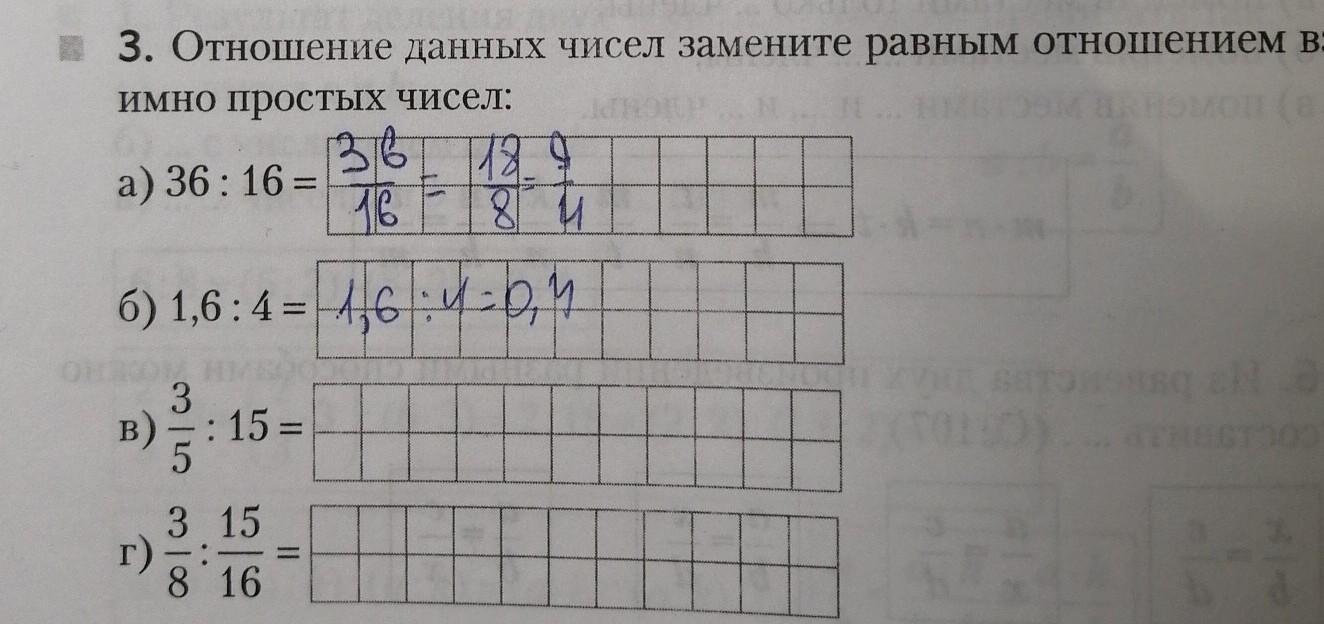 3. Отношение данных чисел замените равным отношением вз
имно простых чисел:
а) 36 : 16 = 36/16 = 18/8 = 9/4
б) 1,6 : 4 = 1,6 : 4 = 0,4
в) 3/5 : 15 =
г) 3/8 : 15/16 =